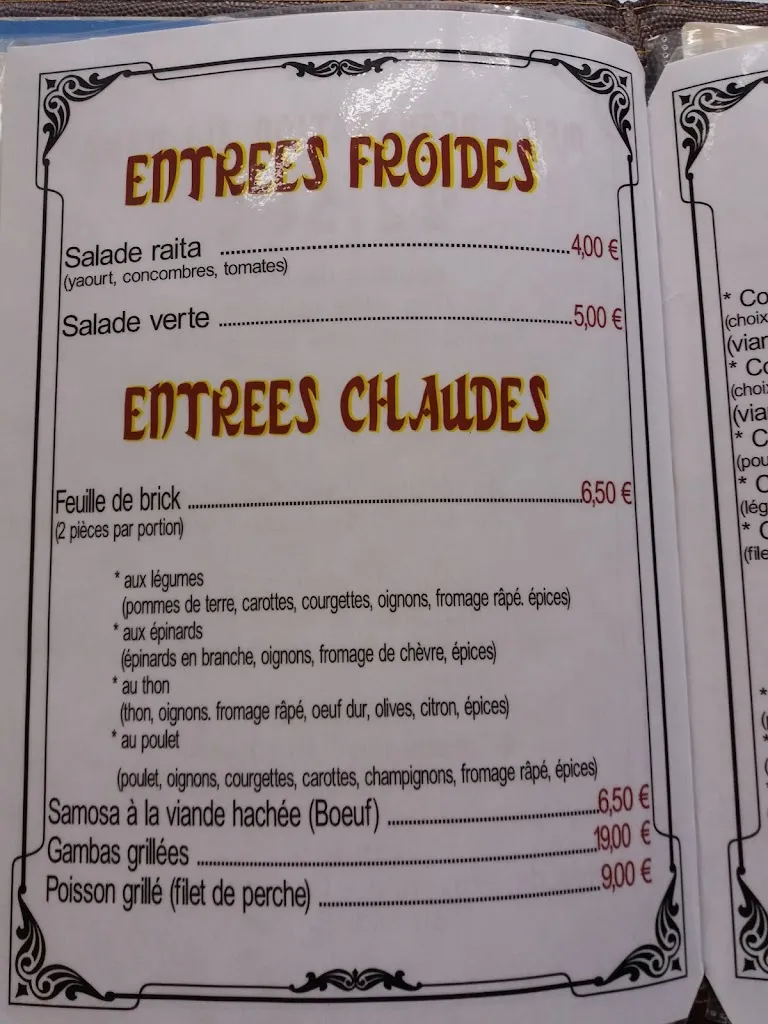 ENTREES FROIDES
Salade raita ........ 4,00 €
(yaourt, concombres, tomates)
Salade verte ........ 5,00 €
ENTREES CHAUDES
Feuille de brick ........ 6,50 €
(2 pièces par portion)
* aux légumes
(pommes de terre, carottes, courgettes, oignons, fromage râpé. épices)
* aux épinards
(épinards en branche, oignons, fromage de chèvre, épices)
* au thon
(thon, oignons. fromage râpé, oeuf dur, olives, citron, épices)
* au poulet
(poulet, oignons, courgettes, carottes, champignons, fromage râpé, épices)
Samosa à la viande hachée (Boeuf) ........ 6,50 €
Gambas grillées ........ 19,00 €
Poisson grillé (filet de perche) ........ 9,00 €
* Co
(choix
(vian
* Co
(choix
(via
* C
(pou
* C
(lég
* C
(file